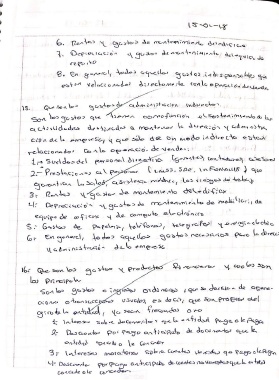 15-01-18
6. Rentas y gastos de mantenimiento de edificio
7. Depreciación y gastos de mantenimiento del equipo de
reparto
8. En general, todos aquellos gastos indispensables que
estan relacionados directamente con la operación de vender
15. Que son los gastos de administración
Son los gastos que tienen como función el sostenimiento de las
actividades destinadas a mantener la dirección y administra
ción de la empresa, y que solo de un modo indirecto están
relacionados con la operación de vender:
1. Sueldos del personal directivo (gerentes, contadores,
2. Prestaciones al personal (IMSS, SAR, INFONAVIT)
3. Rentas y gastos de mantenimiento del edificio
4. Depreciación y gastos de mantenimiento de mobiliario, de
equipo de oficina y de computo electrónico
5. Gastos de papeleria, teléfonos, telegrafos y energía electrica
6. En general, todos aquellos gastos necesarios para la direcc
y administración de la empresa
16. Que son los gastos y productos financieros y cuales son
los principales
Son los gastos e ingresos ordinarios, que se derivan de opera
ciones o transacciones usuales, es decir, que son propias del
giro de la entidad, ya sean frecuentes o no
1. Intereses sobre documentos que la entidad paga
2. Descuentos por Pago anticipado de documentos que la
entidad
3. Intereses moratorios sobre cuentas vencidas que paga
4. Descuentos por pago anticipado de cuentas no vencidas que la entidad